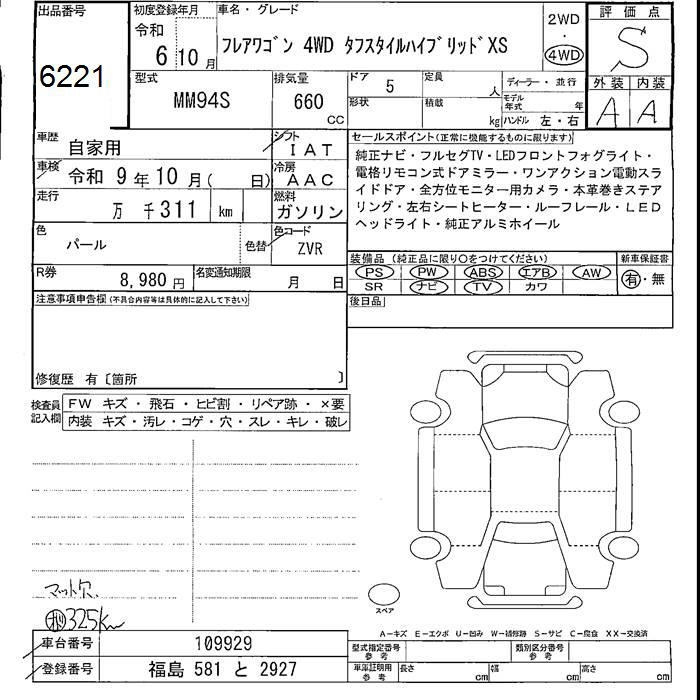 出品番号
6221
初度登録年月
令和
6 10 月
車名・グレード
フレアワゴン 4WD タフスタイルハイブリッドXS
2WD
・
4WD
評価点
S
型式
MM94S
排気量
660
CC
ドア
5
定員
人
ディーラー・並行
形状
積載
kg
モデル
年式
年
ハンドル 左・右
外装 内装
A A
車歴
自家用
シフト
IAT
車検
令和 9年10月( 日)
冷房
AAC
走行
万 千311 km
燃料
ガソリン
色
パール
色替
色コード
ZVR
R券
8,980 円
名変通知期限
月 日
セールスポイント(正常に機能するものに限ります)
純正ナビ・フルセグTV・LEDフロントフォグライト・
電格リモコン式ドアミラー・ワンアクション電動スラ
イドドア・全方位モニター用カメラ・本革巻きステア
リング・左右シートヒーター・ルーフレール・LED
ヘッドライト・純正アルミホイール
装備品(純正品に限り○をつけてください)
PS PW ABS エアB AW
SR ナビ TV カワ
新車保証書
有・無
後日品
注意事項申告欄(不具合内容等は具体的に記入して下さい)
修復歴 有〔箇所 〕
検査員
記入欄
FW キズ・飛石・ヒビ割・リペア跡・×要
内装 キズ・汚レ・コゲ・穴・スレ・キレ・破レ
マット欠.
325km
スペア
A−キズ E−エクボ U−凹み W−補修跡 S−サビ C−腐食 XX−交換済
車台番号
109929
登録番号
福島 581 と 2927
型式指定番号
参考
類別区分番号
参考
車庫証明用
参考
長さ cm
幅 cm
高さ cm